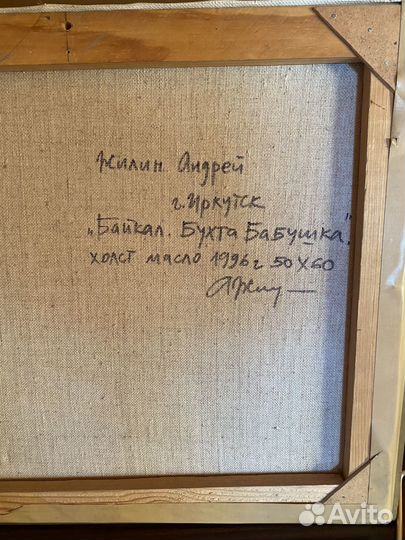 Жилин Андрей
г. Иркутск
„Байкал. Бухта Бабушка."
холст масло 1996 г 50х60
Avito